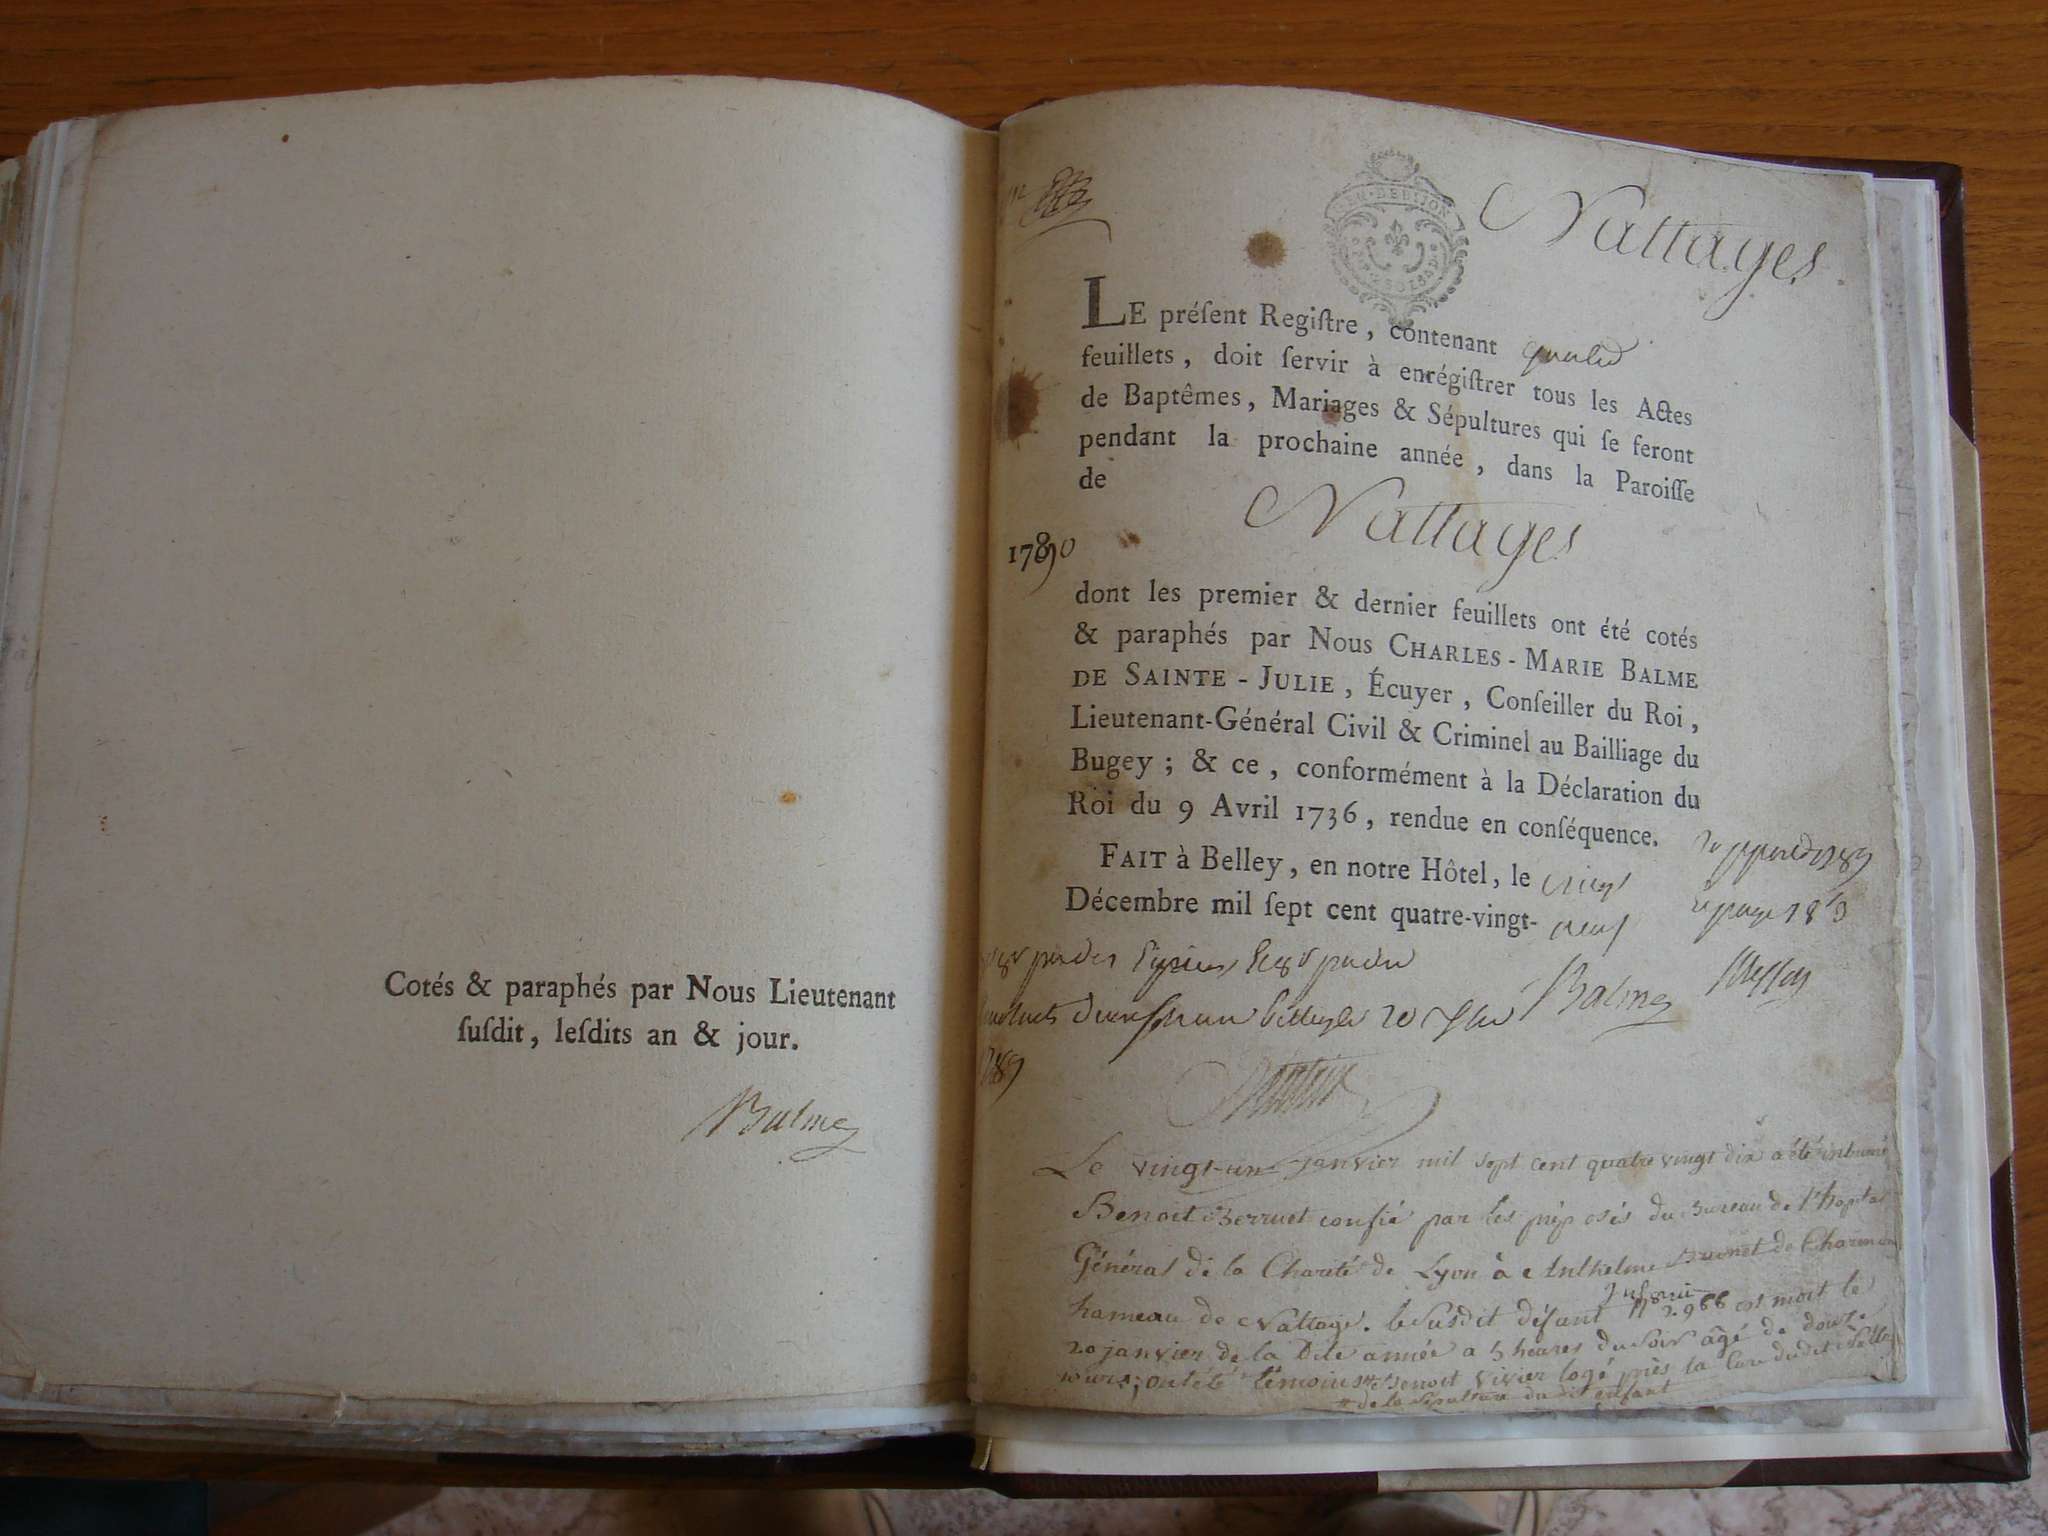 Cotés & paraphés par Nous Lieutenant
ſuſdit, leſdits an & jour.
Balme
GEN. DE DIJON
Nattages
LE préſent Regiſtre, contenant quatre
feuillets, doit ſervir à enrégiſtrer tous les Actes
de Baptêmes, Mariages & Sépultures qui ſe feront
pendant la prochaine année, dans la Paroiſſe
de
Nattages
1790
dont les premier & dernier feuillets ont été cotés
& paraphés par Nous CHARLES-MARIE BALME
DE SAINTE-JULIE, Écuyer, Conſeiller du Roi,
Lieutenant-Général Civil & Criminel au Bailliage du
Bugey; & ce, conformément à la Déclaration du
Roi du 9 Avril 1736, rendue en conſéquence.
FAIT à Belley, en notre Hôtel, le
Décembre mil ſept cent quatre-vingt-neuf
Balme
Le vingt-un janvier mil sept cent quatre vingt dix a été inhumé
Benoit Berruet confié par les préposés du Bureau de l'hopital
Général de la Charité de Lyon à Anthelme Brunet de
hameau de Nattage. le susdit défunt n° 2.966 est mort le
20 janvier de la dite année a 5 heures du soir âgé de douze
jours; ont été témoins Benoit Vivier logé près la Cure dudit
de la sépulture du dit enfant